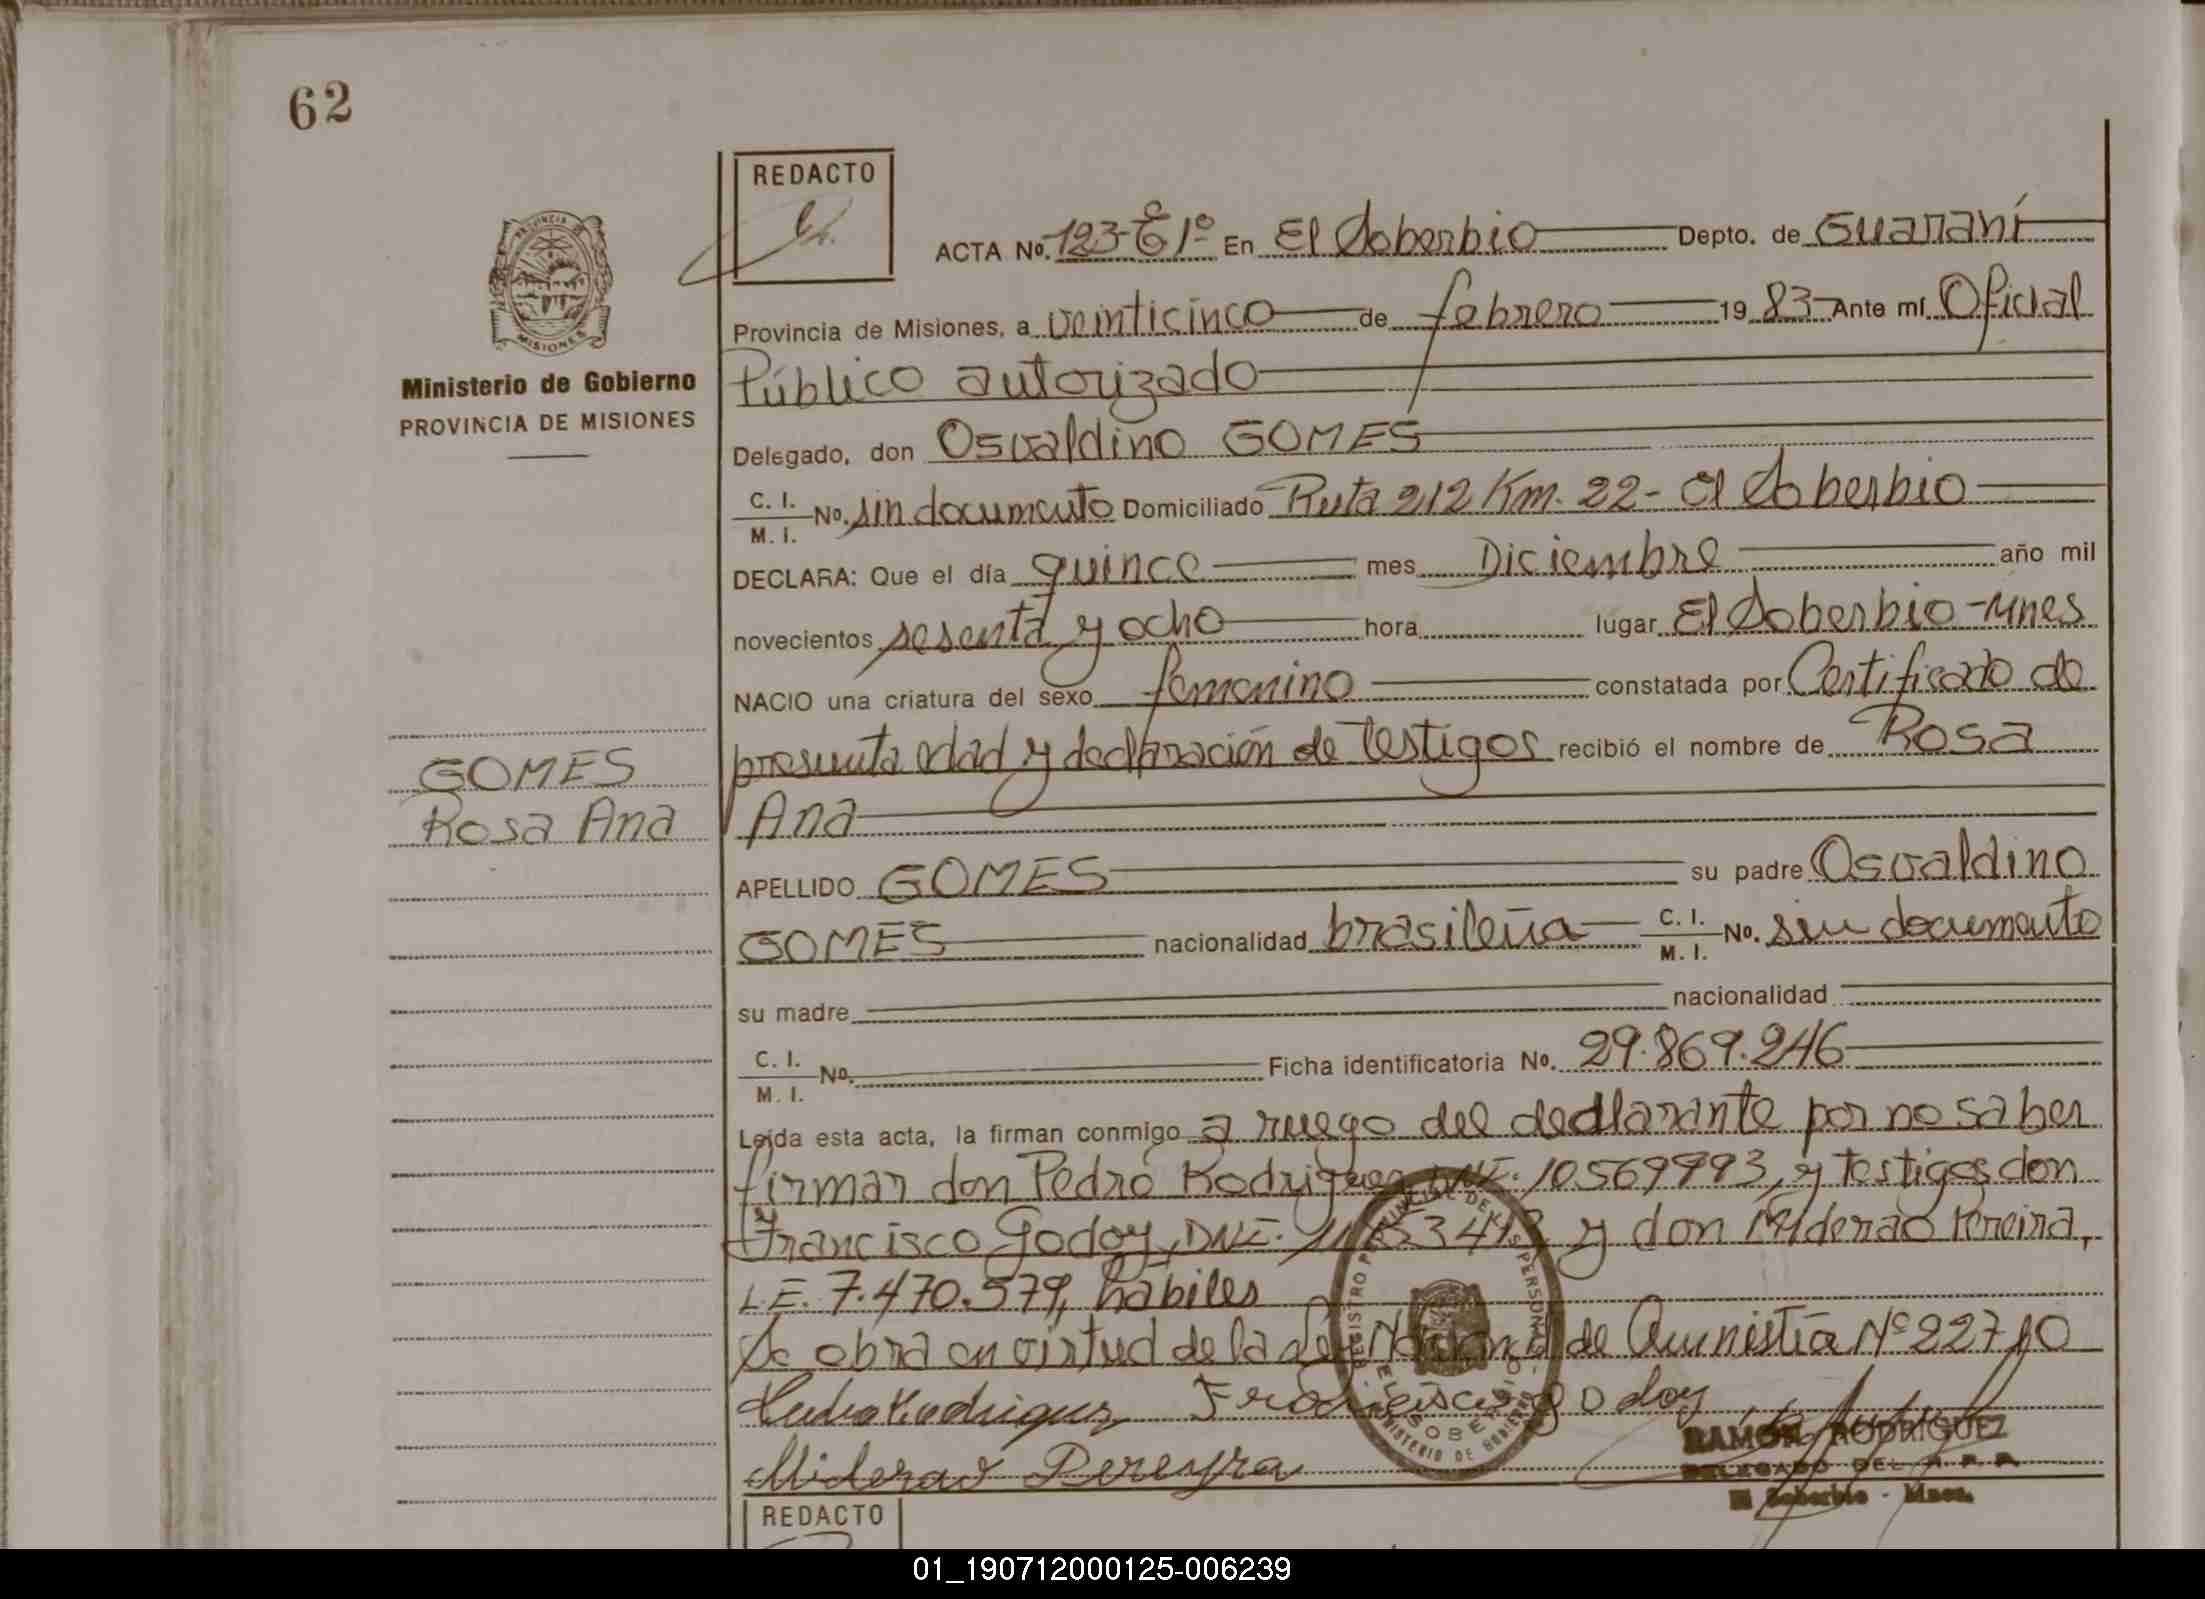 62
REDACTO
ACTA No. 123-Tº 1º En El Soberbio Depto. de Guaraní
Provincia de Misiones, a veinticinco de febrero 19 83 Ante mí Oficial
Público autorizado
Ministerio de Gobierno
PROVINCIA DE MISIONES
Delegado, don Osvaldino GOMES
C. I.
M. I. No. sin documento Domiciliado Ruta 212 Km. 22- El Soberbio
DECLARA: Que el día quince mes Diciembre año mil
novecientos sesenta y ocho hora lugar El Soberbio-Mnes
NACIO una criatura del sexo femenino constatada por Certificado de
presunta edad y declaración de testigos recibió el nombre de Rosa
Ana
GOMES
Rosa Ana
APELLIDO GOMES su padre Osvaldino
GOMES nacionalidad brasileña C. I.
M. I. No. sin documento
su madre nacionalidad
C. I.
M. I. No. Ficha identificatoria No. 29.869.246
Leída esta acta, la firman conmigo a ruego del declarante por no saber
firmar don Pedro Rodriguez DNI. 10569993, y testigos don
Francisco Godoy, DNI. y don Pereira,
L.E. 7.470.579, hábiles
Se obra en virtud de la Ley Nacional de Amnistía Nº 22710
Pedro Rodriguez Francisco Godoy
Pereyra
RAMÓN RODRIGUEZ
DELEGADO DEL R. P. P.
El Soberbio - Mnes.
REDACTO
01_190712000125-006239